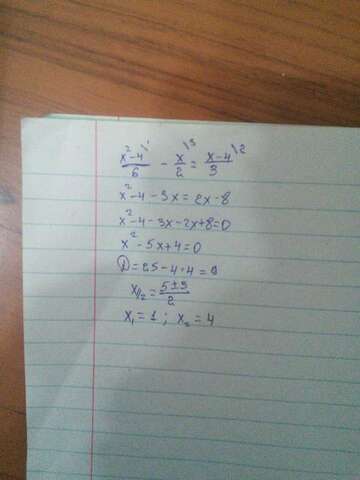 x²-4\1/6 - x\3/2 = x-4\2/3
x²-4-3x=2x-8
x²-4-3x-2x+8=0
x²-5x+4=0
D=25-4·4=9
x1/2=5±3/2
x₁=1; x₂=4